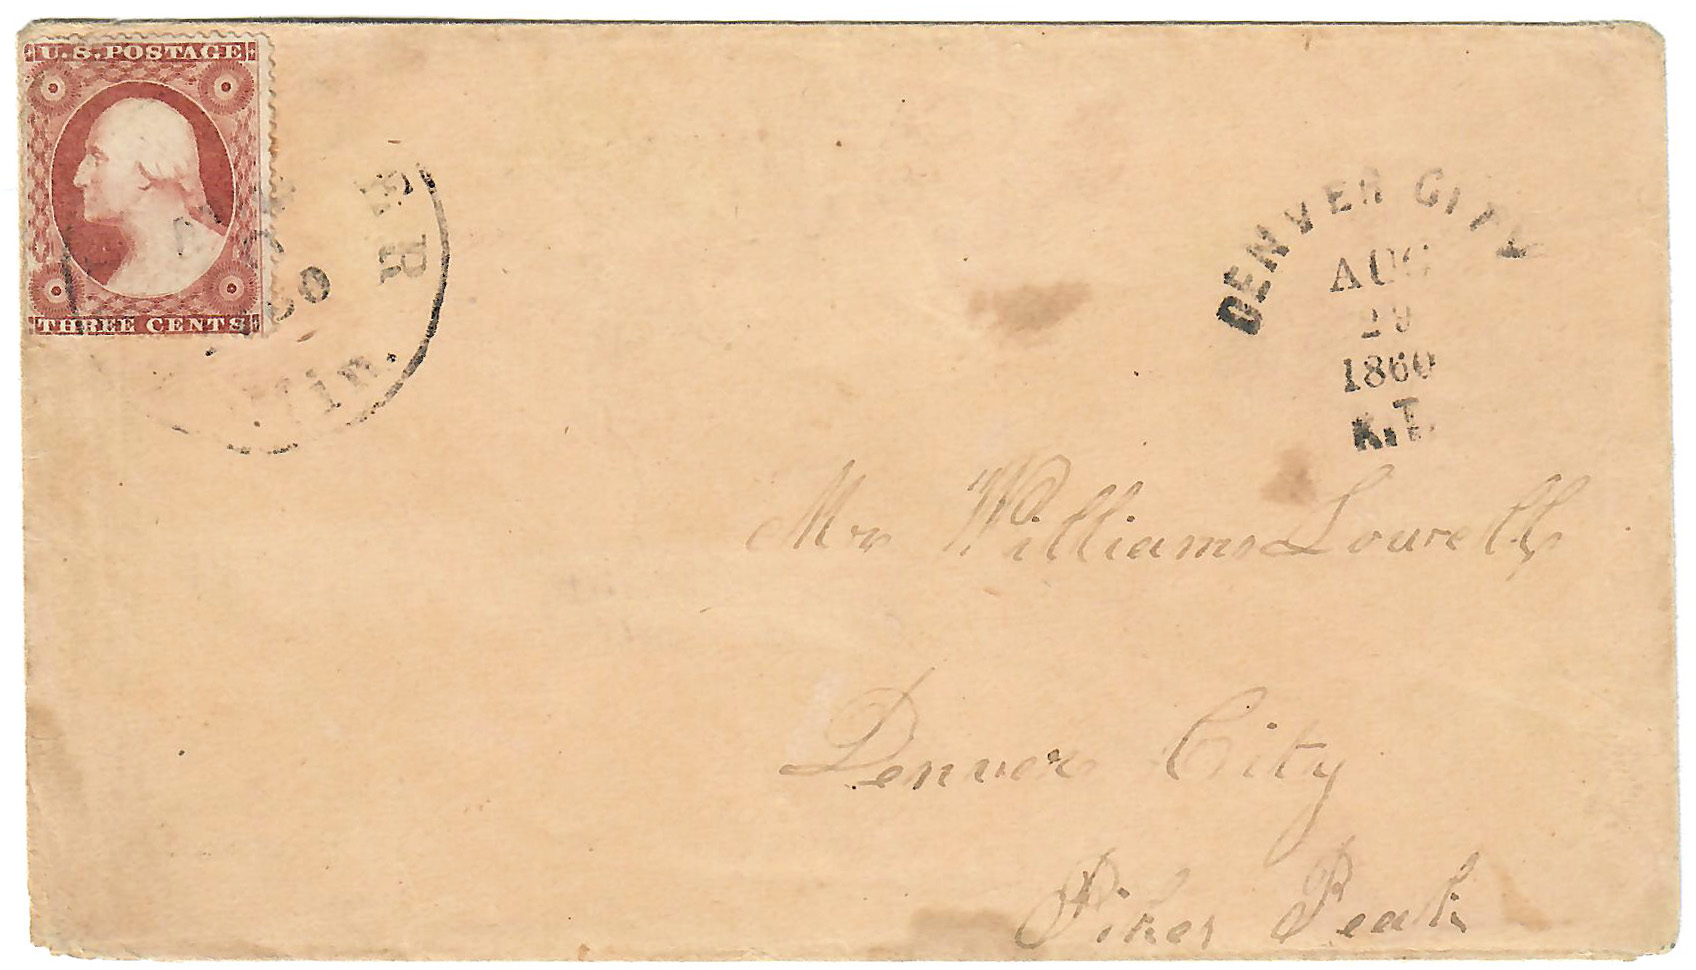 U.S. POSTAGE
THREE CENTS
DENVER CITY
AUG
29
1860
K.T.
Mr William Lowell
Denver City
Pikes Peak